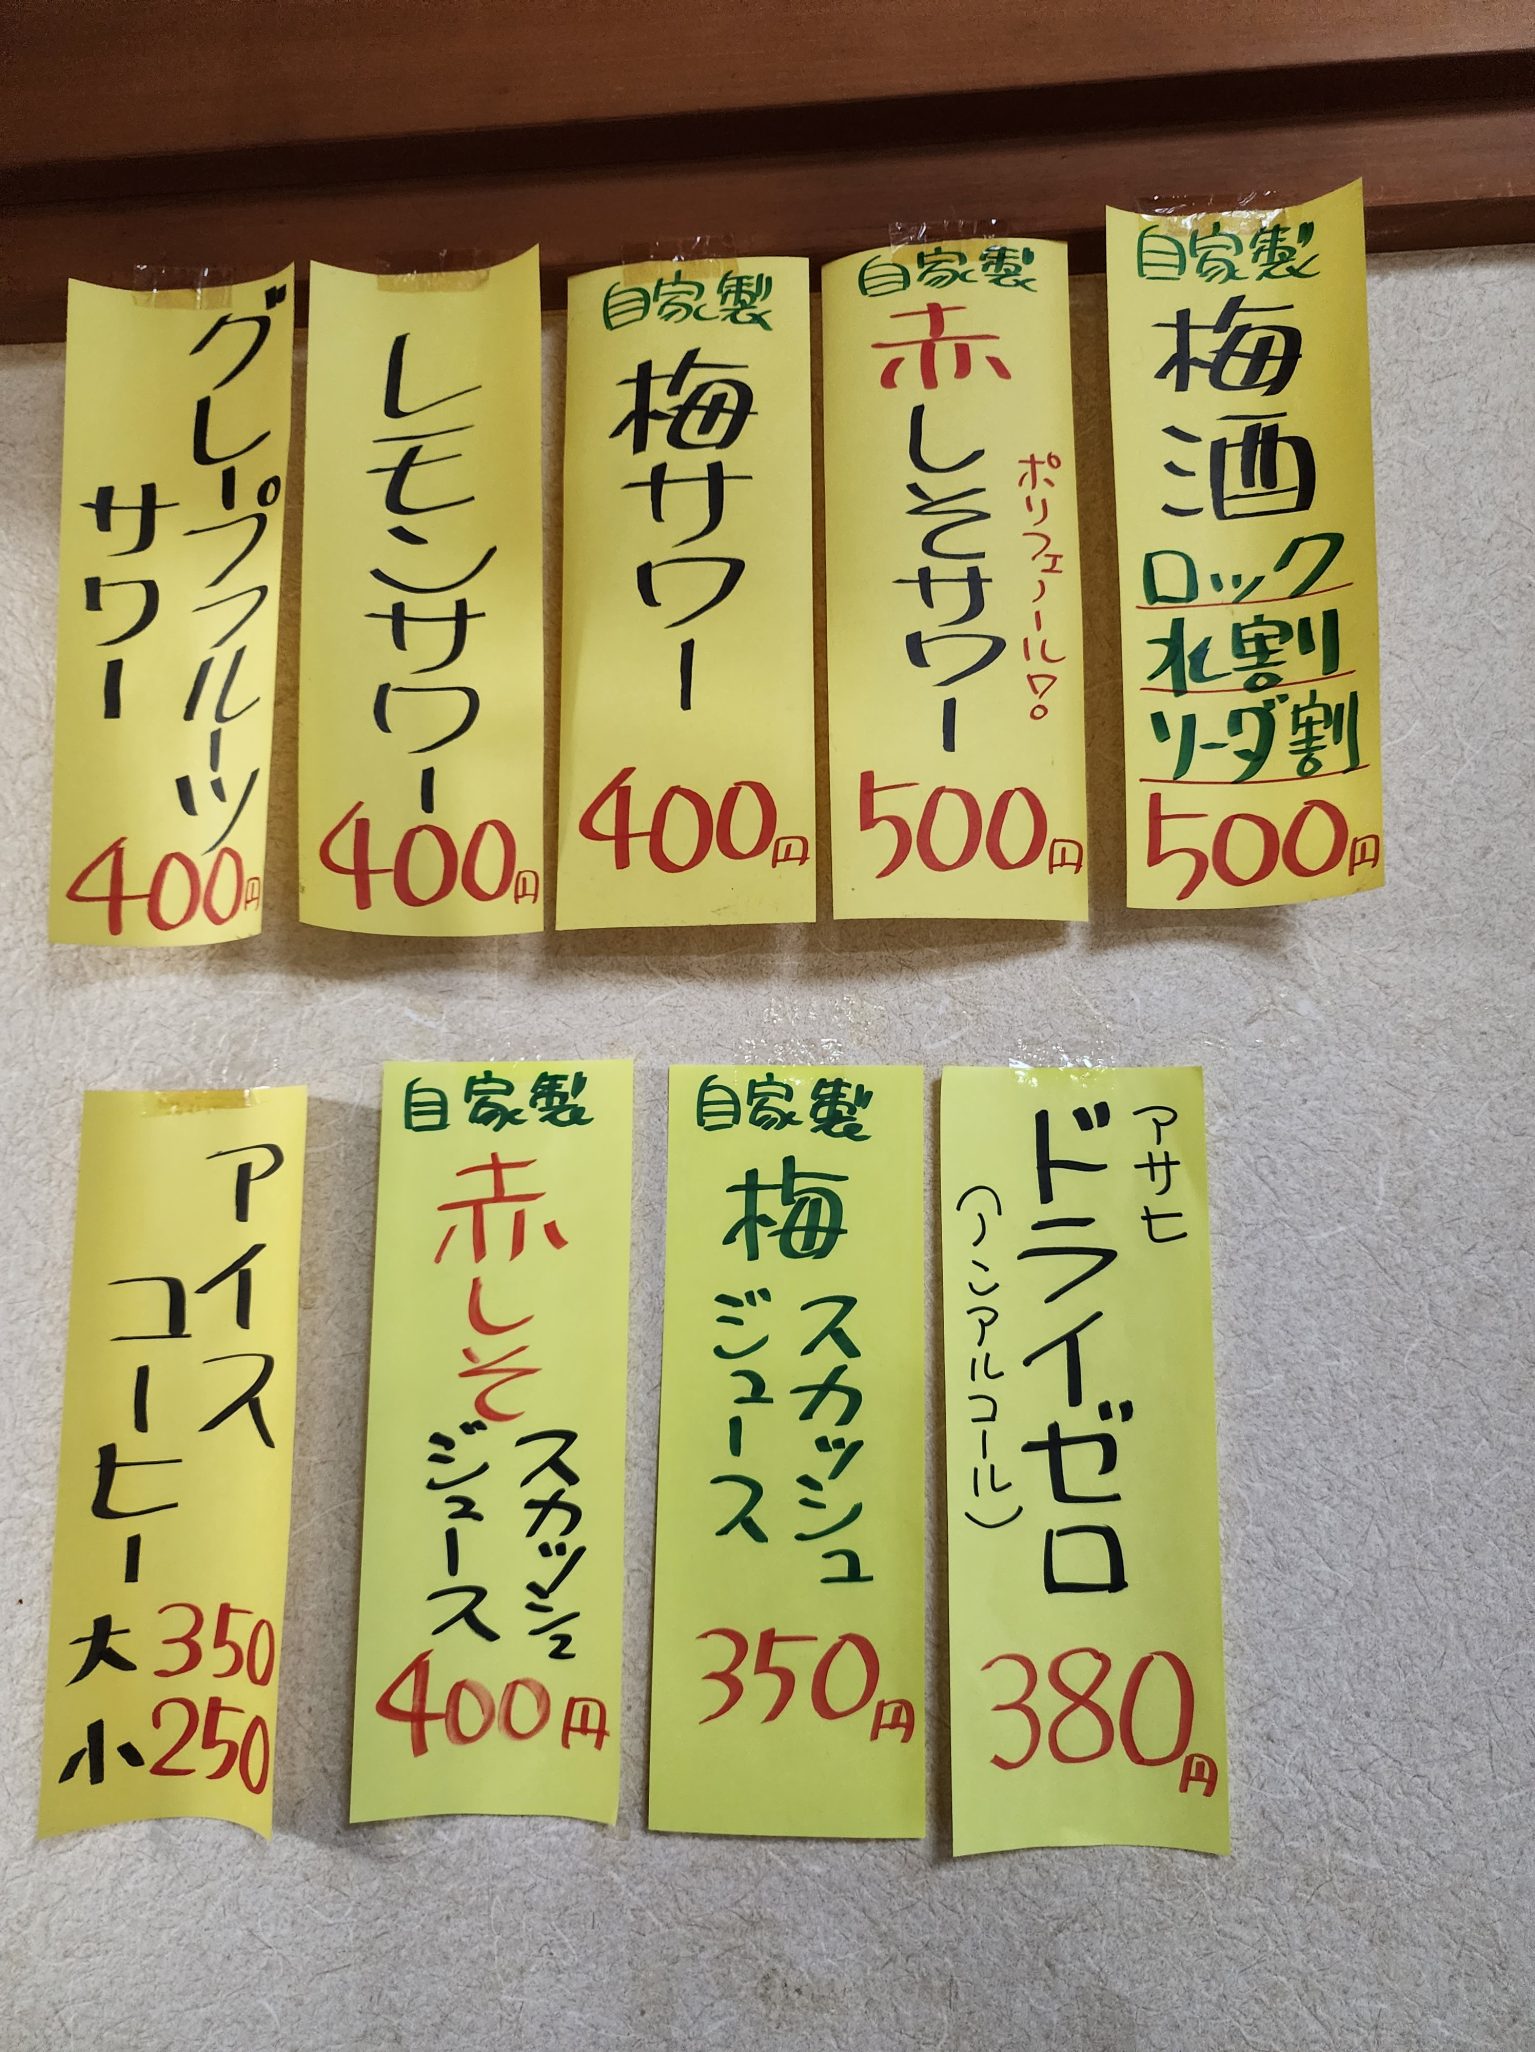 自家製
梅酒
ロック
水割り
ソーダ割
500円
自家製
赤しそサワー
ポリフェノール
500円
自家製
梅サワー
400円
レモンサワー
400円
グレープフルーツ
サワー
400円
アサヒ
ドライゼロ
(ノンアルコール)
380円
自家製
梅
スカッシュ
ジュース
350円
自家製
赤しそ
スカッシュ
ジュース
400円
アイス
コーヒー
大350
小250